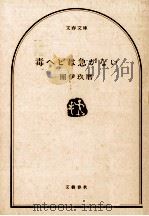 文春文庫
毒へびは急がない
團伊玖磨
文藝春秋